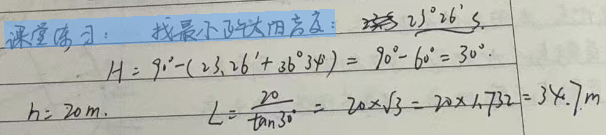 课堂练习: 找最小正午太阳高度: 23°26′S.
H = 90°-(23.26′+36°34′) = 90°-60° = 30°.
h = 20m. L = 20/tan30° = 20×√3 = 20×1.732 = 34.7m